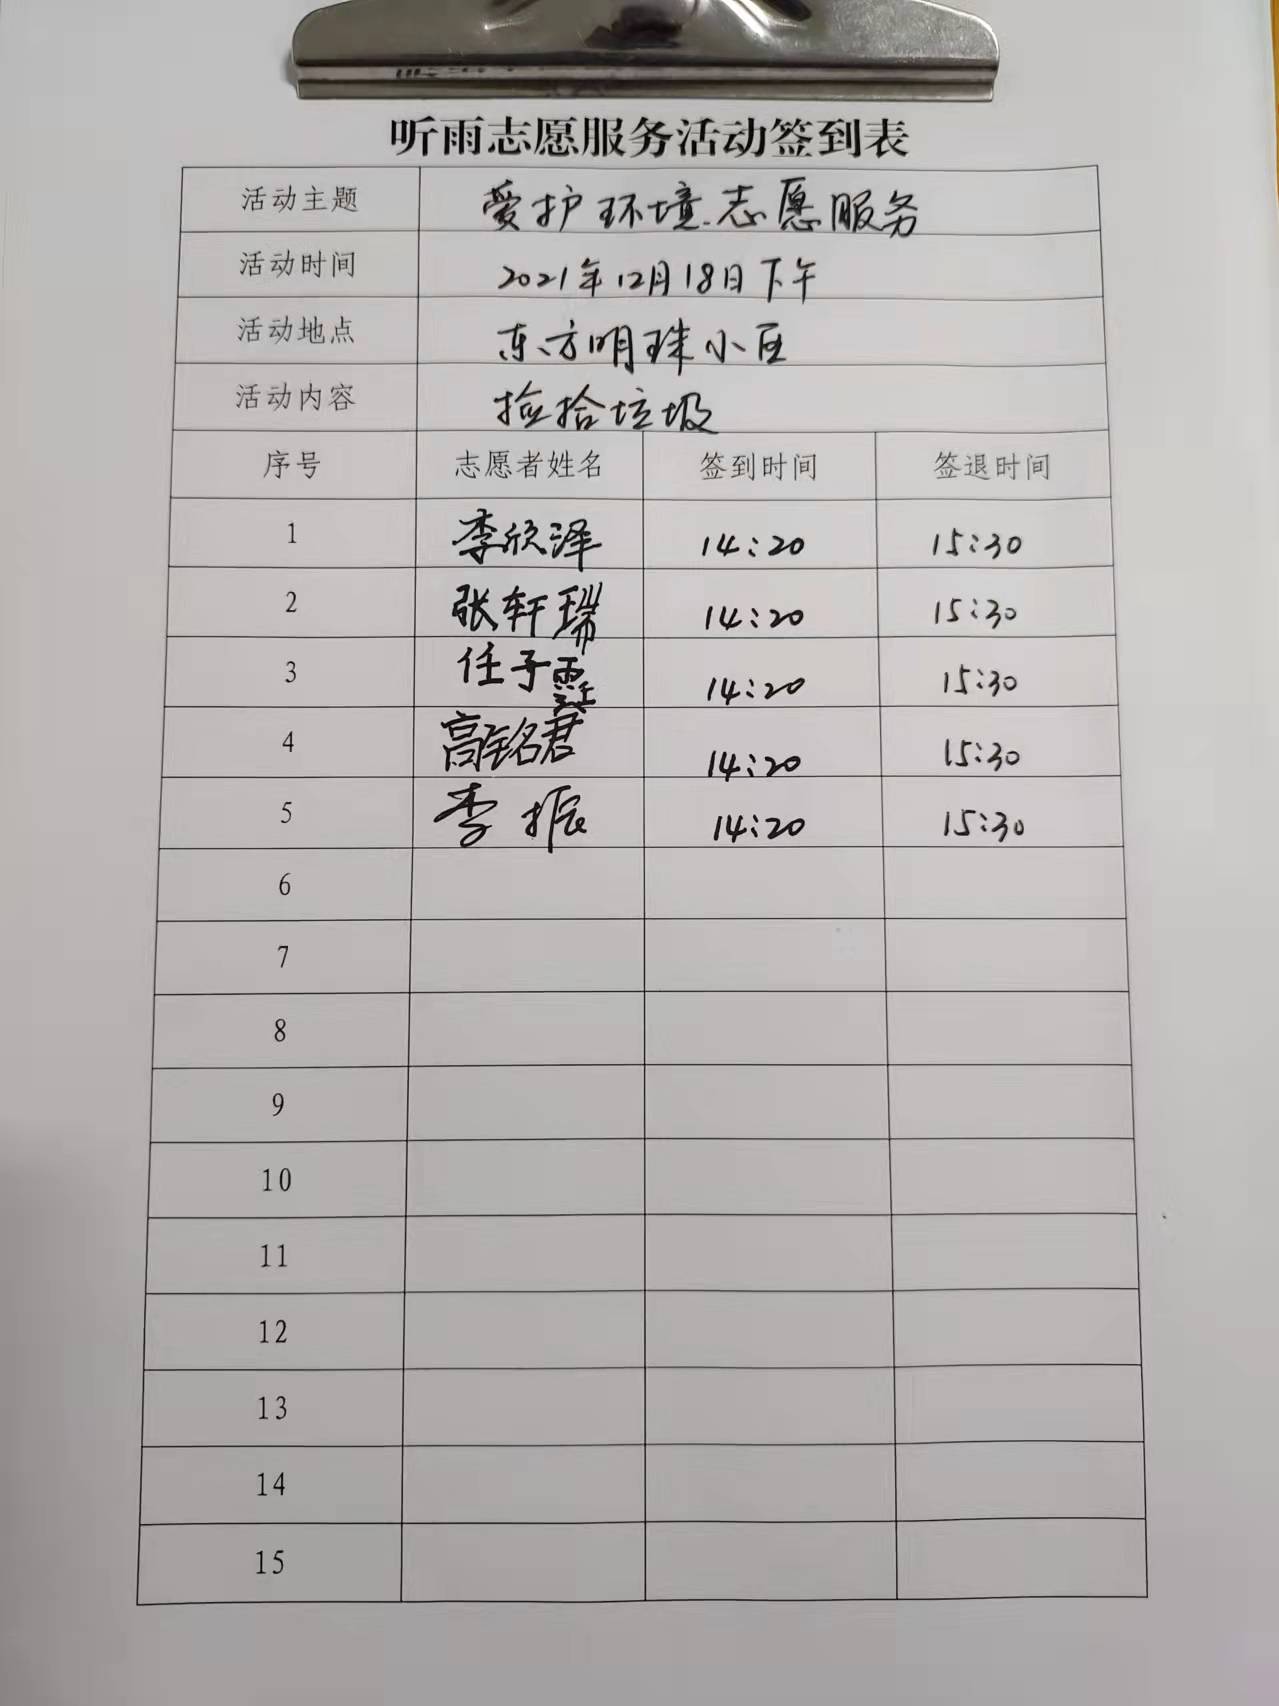 听雨志愿服务活动签到表
活动主题 爱护环境志愿服务
活动时间 2021年12月18日下午
活动地点 东方明珠小区
活动内容 捡拾垃圾
序号 志愿者姓名 签到时间 签退时间
1 李欣泽 14:20 15:30
2 张轩瑞 14:20 15:30
3 任子 14:20 15:30
4 高铭君 14:20 15:30
5 李振 14:20 15:30
6
7
8
9
10
11
12
13
14
15